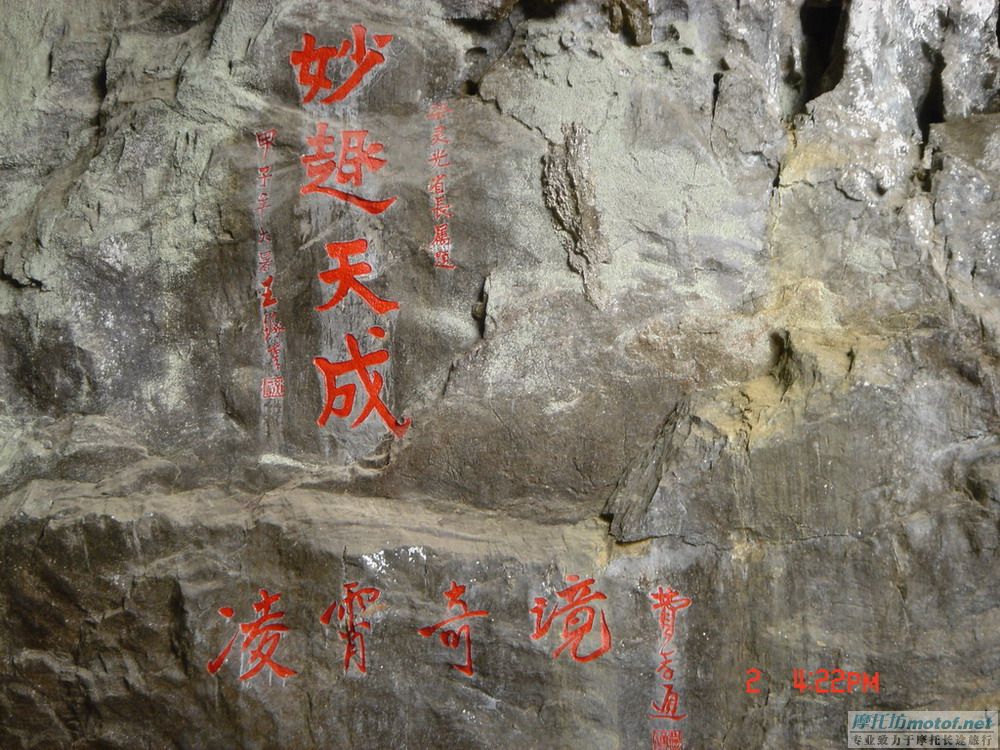 妙趣天成
灵光省長屬題
甲子年大暑王
凌霄奇境
費
通
2 4:22PM
摩托坊motof.net
专业致力于摩托长途旅行